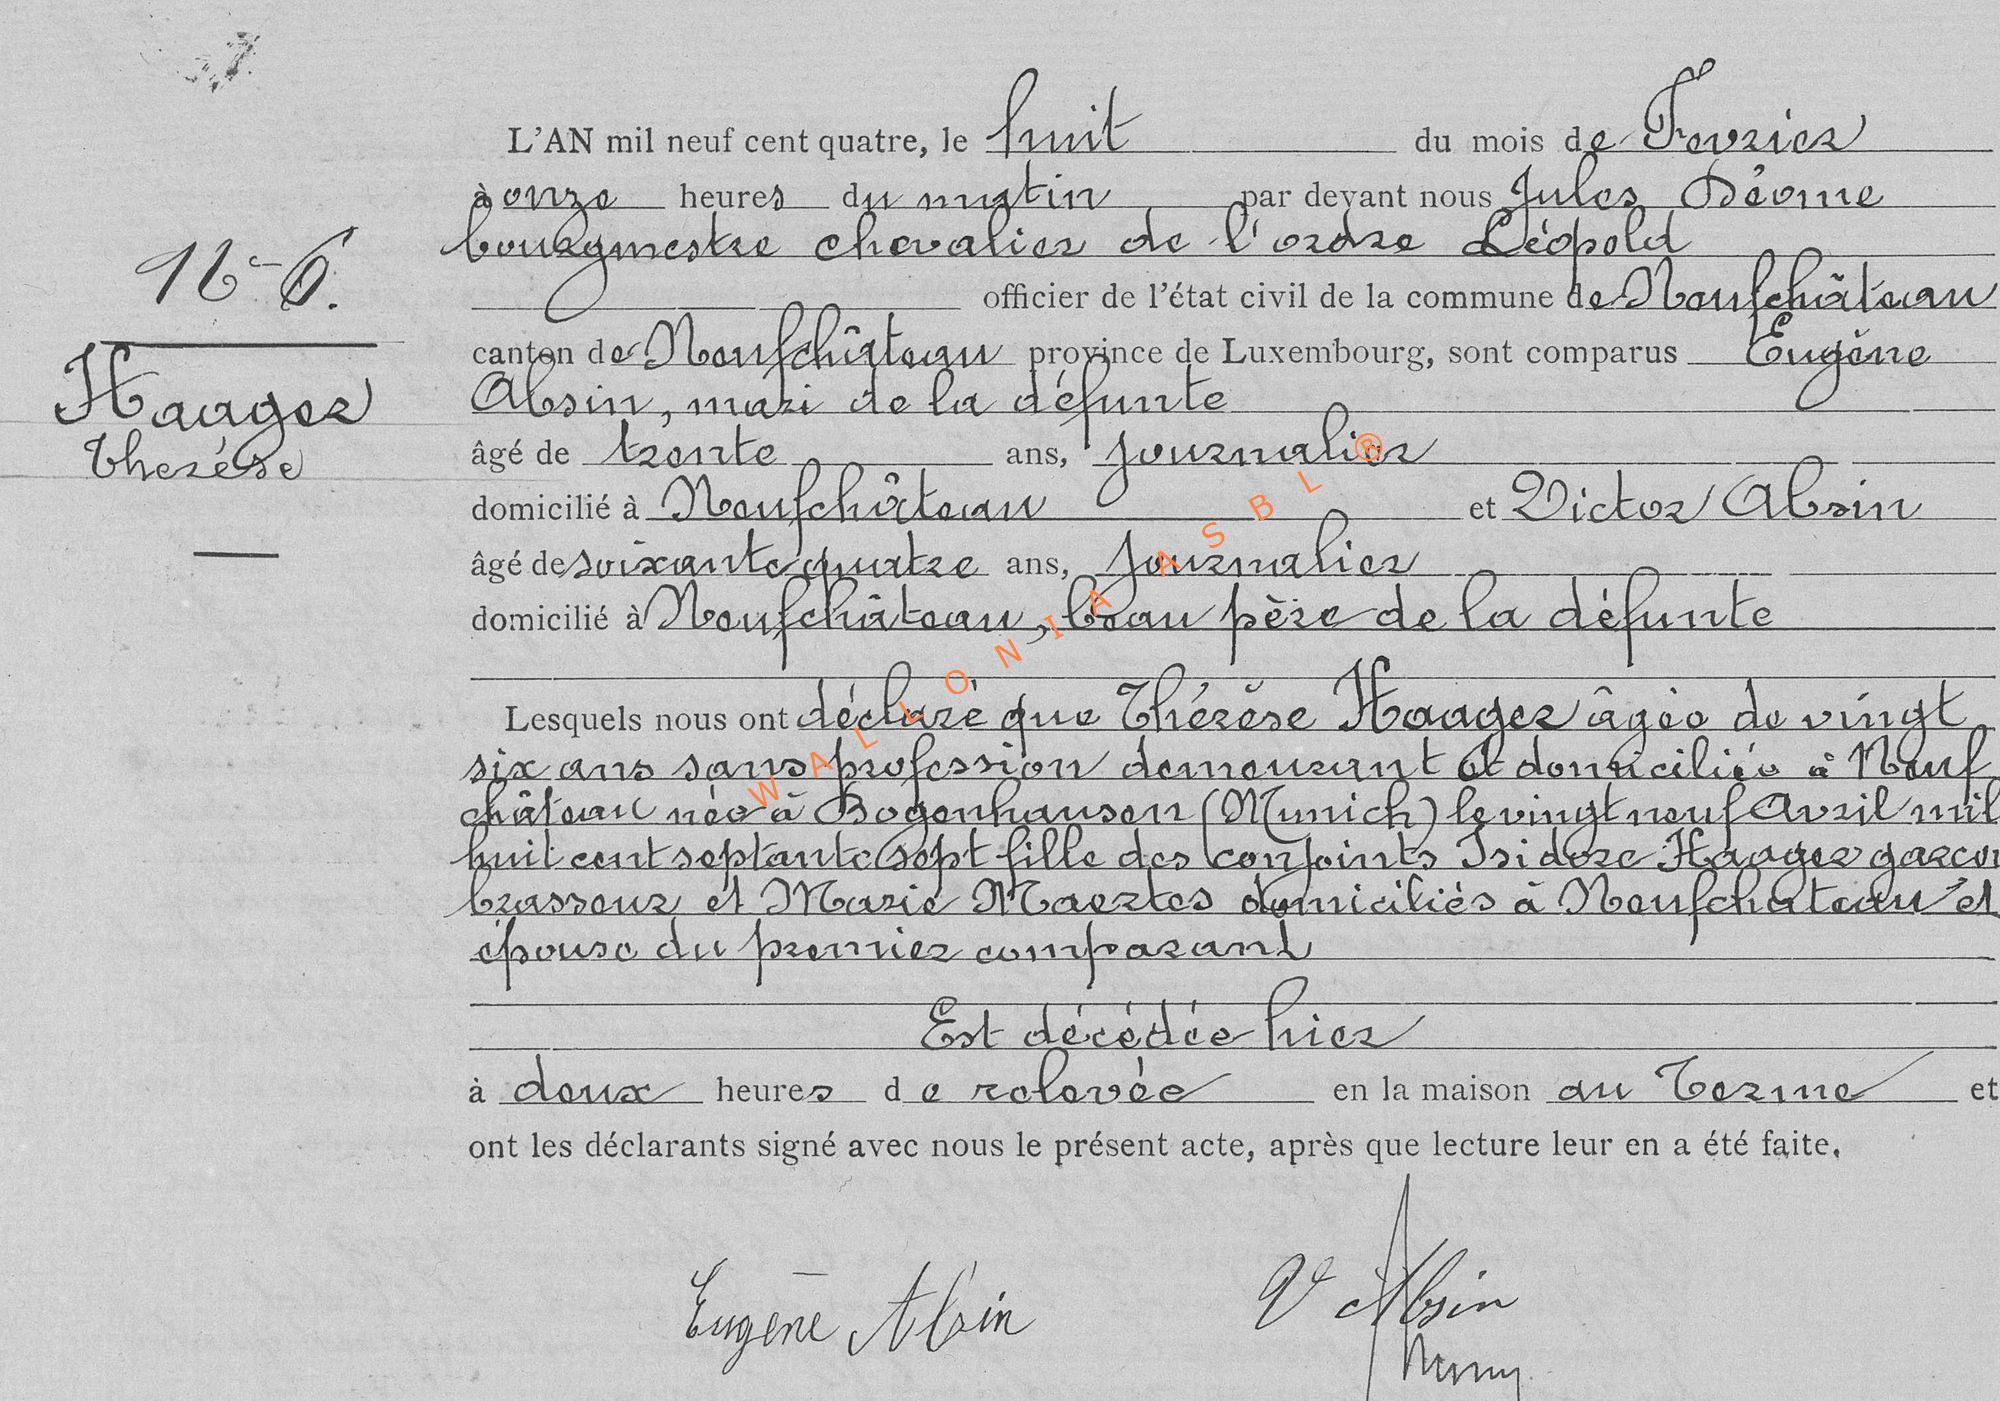 L'AN mil neuf cent quatre, le huit du mois de Fevrier
à onze heures du matin par devant nous Jules Déome
bourgmestre chevalier de l'ordre Léopold
N-6. officier de l'état civil de la commune de Neufchâteau
canton de Neufchâteau province de Luxembourg, sont comparus Eugène
Haager
Absin, mari de la défunte
Therése
âgé de trente ans, journalier
domicilié à Neufchâteau et Victor Absin
âgé de soixante quatre ans, journalier
domicilié à Neufchâteau, beau père de la défunte
Lesquels nous ont déclaré que Thérèse Haager âgée de vingt
six ans sans profession demeurant et domiciliée à Neuf
château née à Bogenhausen (Munich) le vingt neuf Avril mil
huit cent septante sept fille des conjoints Isidore Haager garçon
brasseur et Marie Maertes domiciliés à Neufchateau et
épouse du premier comparant
Est décédée hier
à deux heures de relevée en la maison au Terme et
ont les déclarants signé avec nous le présent acte, après que lecture leur en a été faite.
Eugène Absin V Absin
WALLONIA ASBL ®